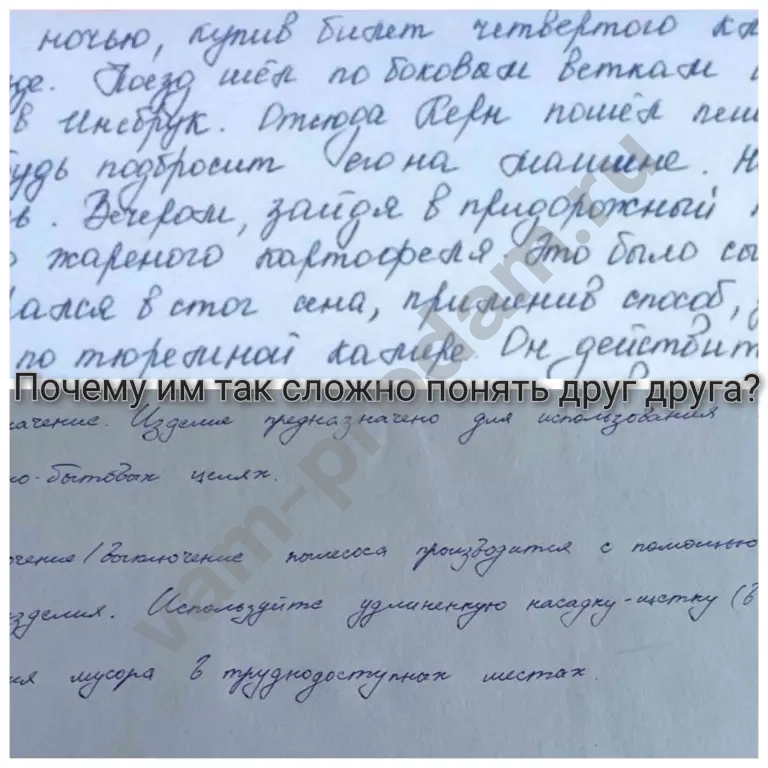 ночью, купив билет четвертого кл
де. Поезд шёл по боковым веткам
в Инсбрук. Отсюда Керн пошёл пеш
удь подбросит его на машине. Н
ь. Вечером, зайдя в придорожный
о жареного картофеля. Это было сы
ался в стог сена, применив способ,
по тюремной камере. Он действит
Почему им так сложно понять друг друга?
начение. Изделие предназначено для использования
но-бытовых целях.
ючение/выключение пылесоса производится с помощью
зделия. Используйте удлиненную насадку-щетку (в
ия мусора в труднодоступных местах.
vam-prodam.ru